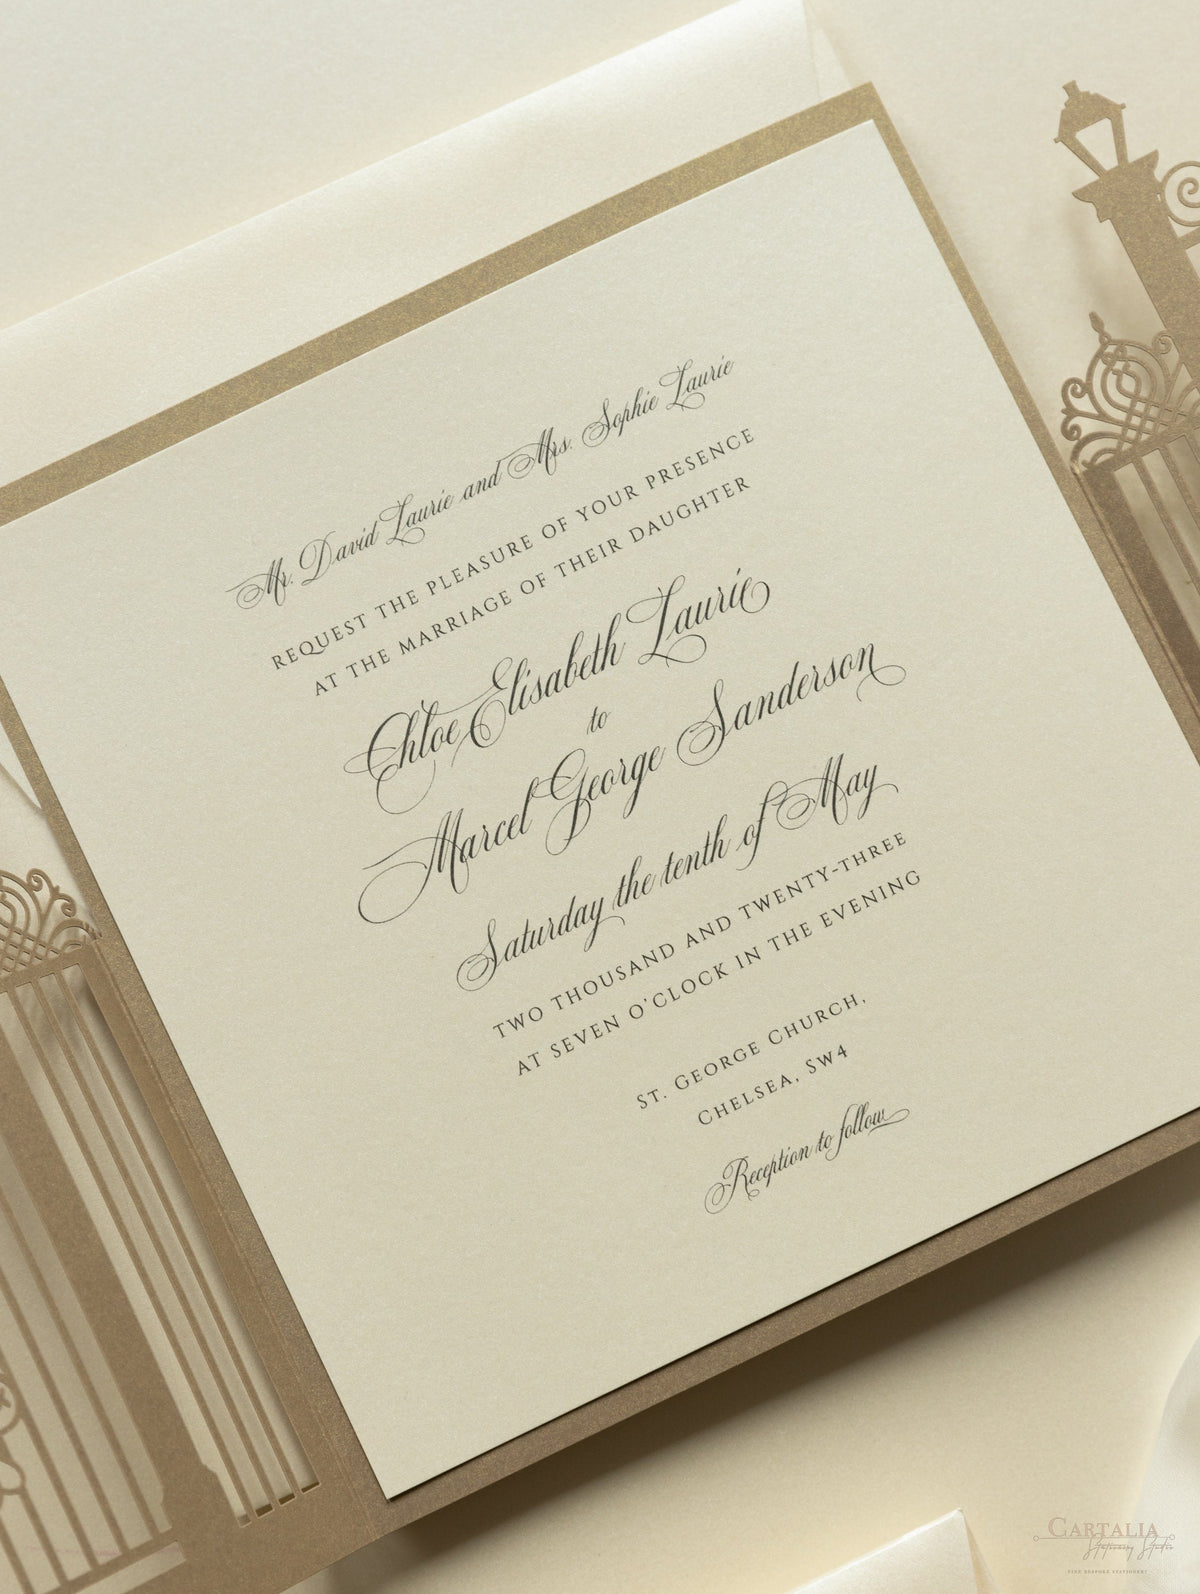 Mr. David Laurie and Mrs. Sophie Laurie
REQUEST THE PLEASURE OF YOUR PRESENCE
AT THE MARRIAGE OF THEIR DAUGHTER
Chloe Elisabeth Laurie
to
Marcel George Sanderson
Saturday the tenth of May
TWO THOUSAND AND TWENTY-THREE
AT SEVEN O'CLOCK IN THE EVENING
ST. GEORGE CHURCH,
CHELSEA, SW4
Reception to follow
CARTALIA
Stationery Studio
FINE BESPOKE STATIONERY